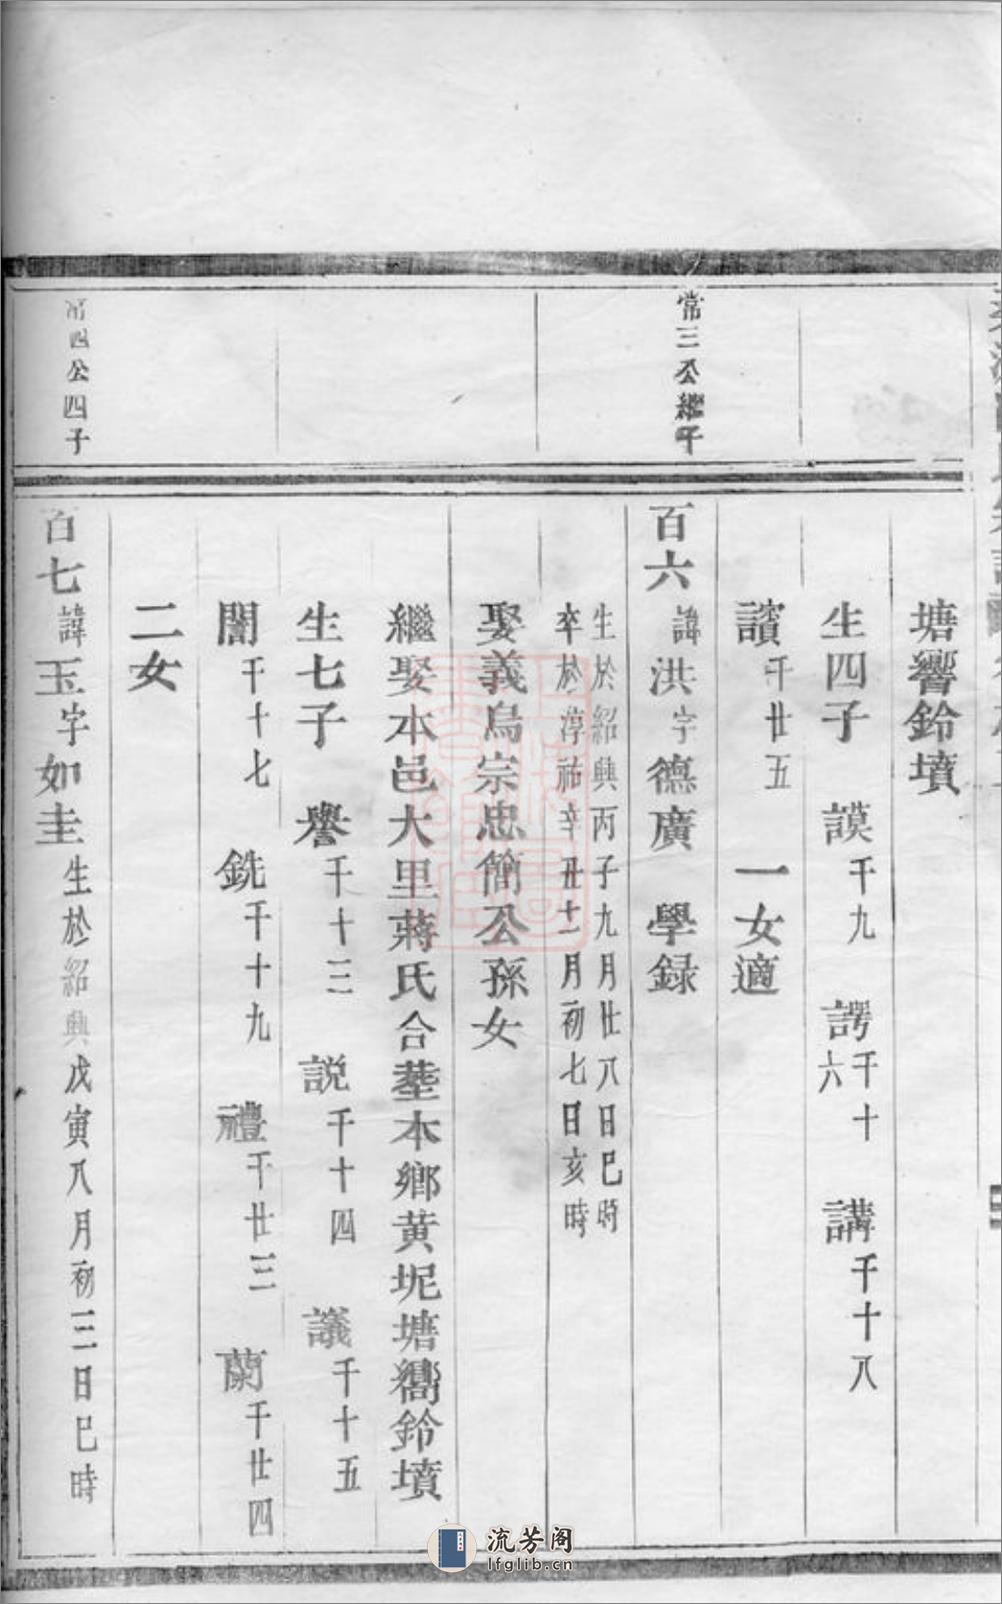 塘響鈴墳
生四子 謨千九 諤千十六 講千十八
讀千廿五 一女適
常三公繼子
百六諱洪字德廣 學録
生於紹興丙子九月廿八日巳時
卒於淳祐辛丑十二月初七日亥時
娶義烏宗忠簡公孫女
繼娶本邑大里蔣氏合塟本鄉黄坭塘響鈴墳
生七子 譽千十三 説千十四 議千十五
誾千十七 銑千十九 禮千廿三 蘭千廿四
二女
常四公四子
百七諱玉字如圭生於紹興戊寅八月初三日巳時
流芳阁
lfglib.cn